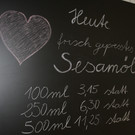 Heute
frisch gepresstes
Sesamöl
100ml 3,15 statt
250ml 6,30 statt
500ml 11,25 statt